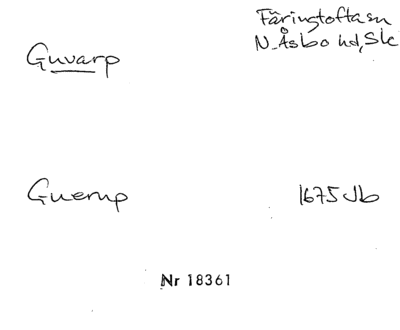 Färingtofta sn
Guvarp N. Åsbo hd, Sk
Guerup 1675 Jb
Nr 18361